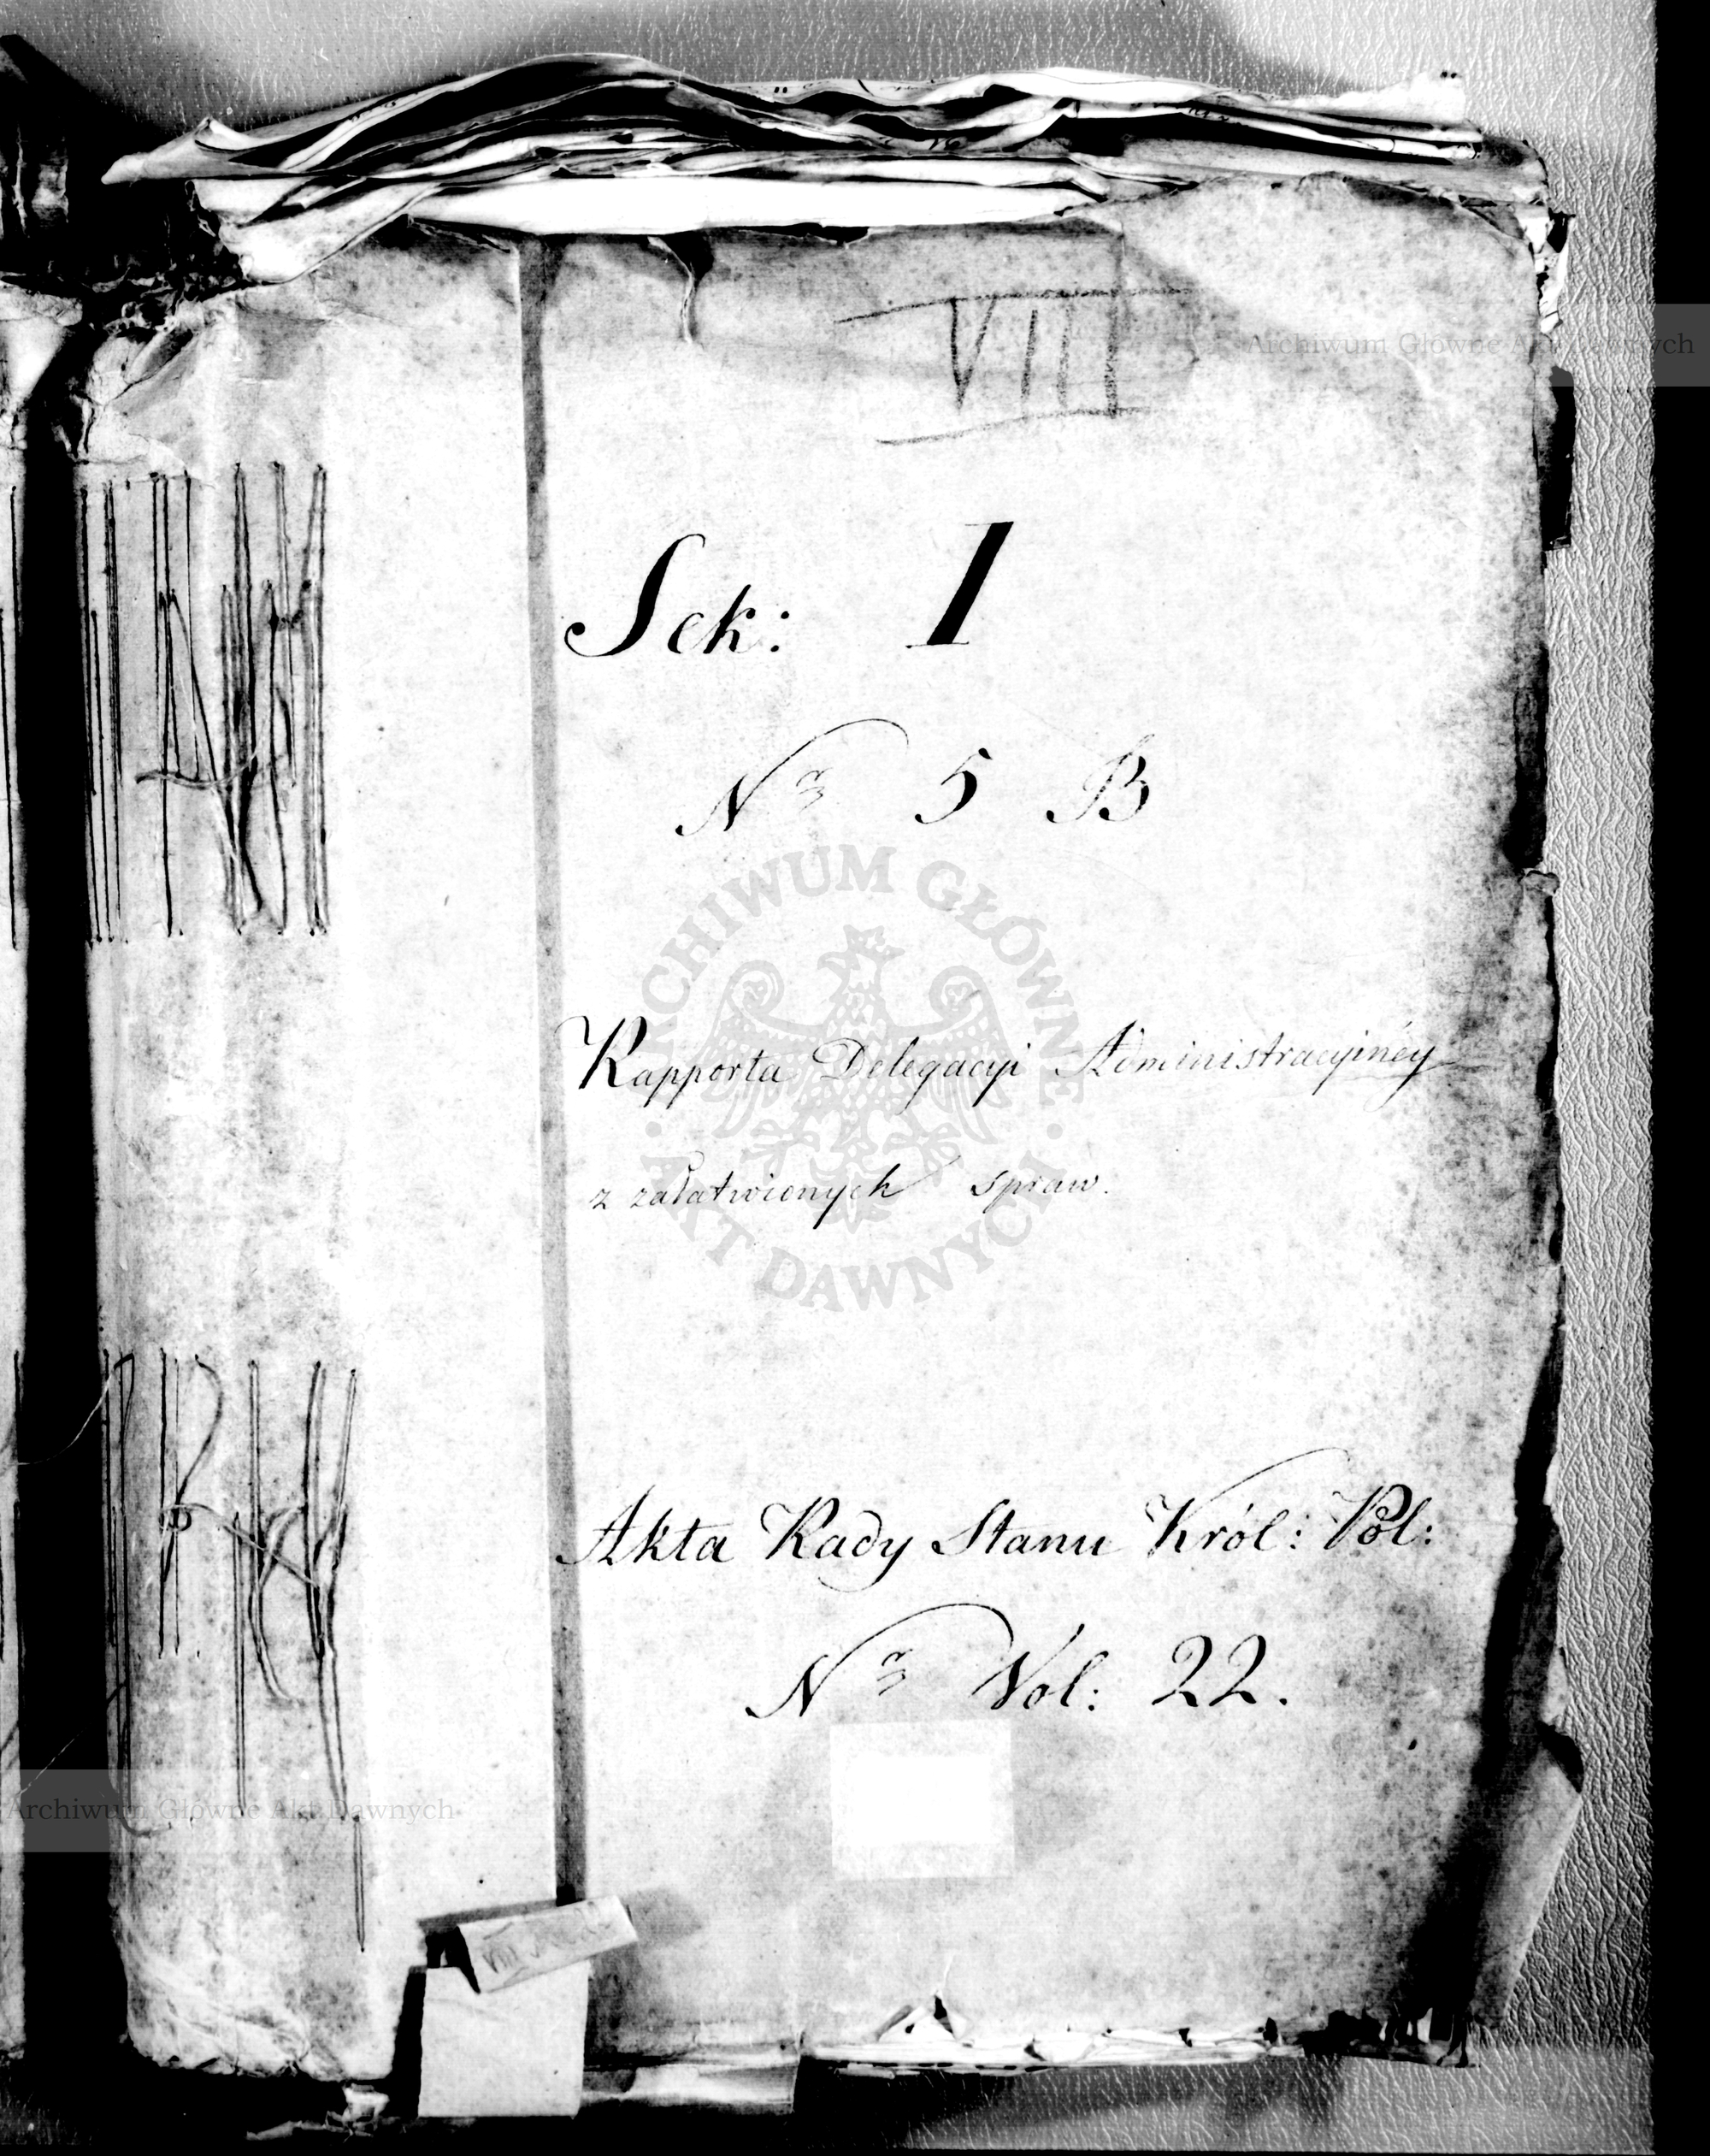 VIII
Sek: I
Nro 5 B
Rapporta Delegacyi Administracyinéy
z załatwionych spraw.
Akta Rady Stanu Król: Pol:
Nro Vol: 22.
ARCHIWUM GŁÓWNE
AKT DAWNYCH
Archiwum Główne Akt Dawnych
Archiwum Główne Akt Dawnych